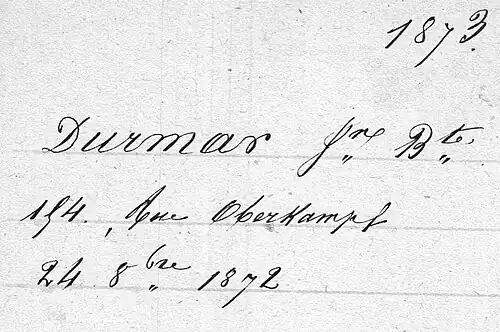 1873.
Durmar Jne Bte.
154. Rue Oberkampf
24 8bre 1872